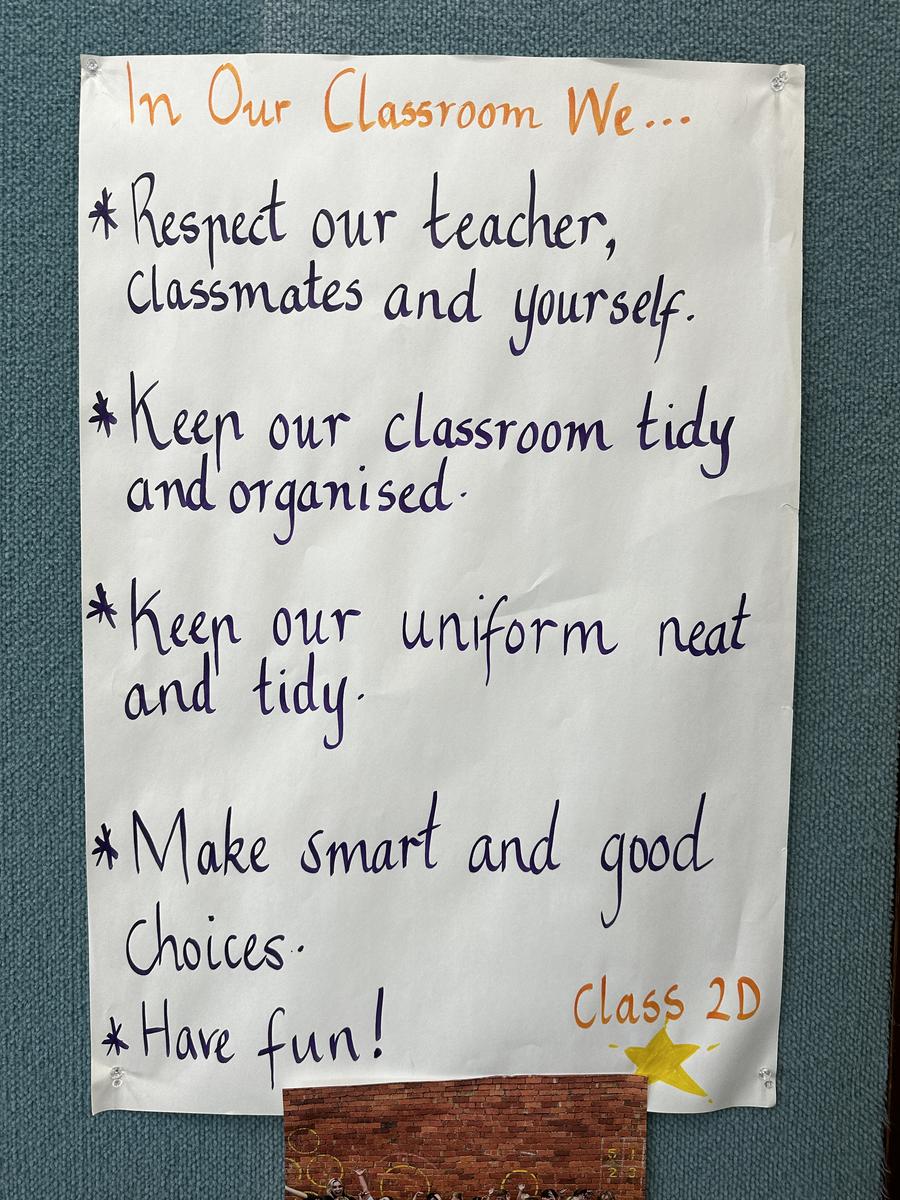 In Our Classroom We...
* Respect our teacher,
classmates and yourself.
* Keep our classroom tidy
and organised.
* Keep our uniform neat
and tidy.
* Make smart and good
Choices.
* Have fun!
Class 2D
5 1
2 3